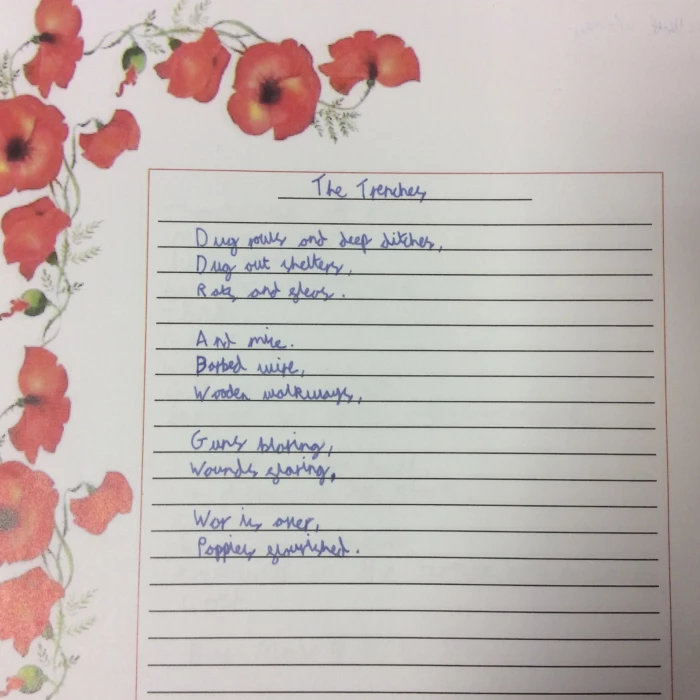 The Trenches
Dug outs and deep ditches,
Dug out shelters,
Rats and fleas.
And mice.
Barbed wire,
Wooden walkways,
Guns blazing,
Wounds glaring,
War is over,
Poppies flourished.